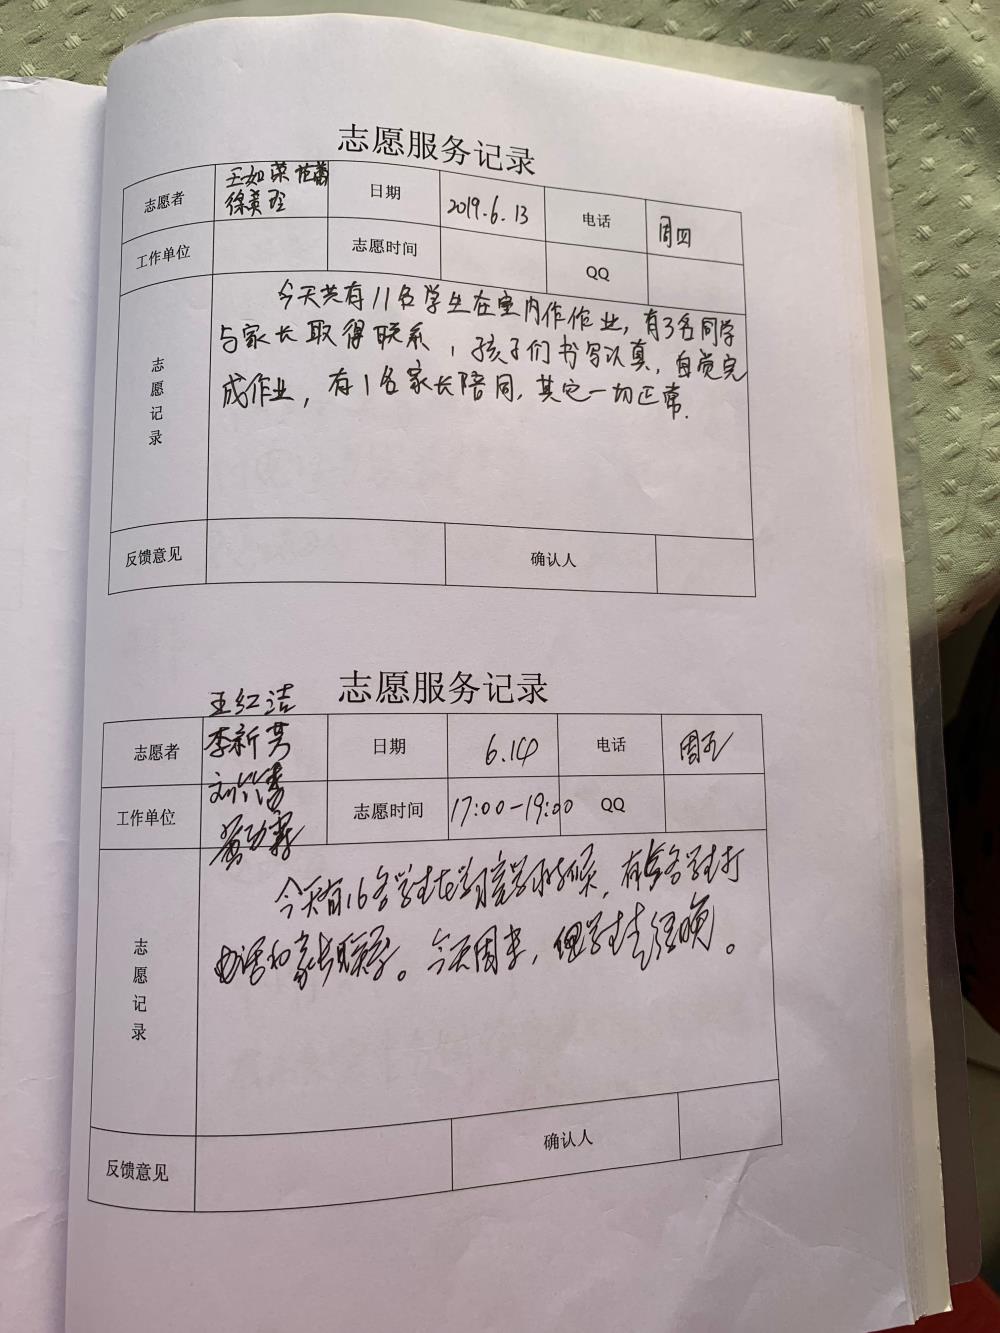 志愿服务记录
志愿者 王如荣 日期 2019.6.13 电话 周四
徐美玲
工作单位 志愿时间 QQ
今天共有11名学生在室内作作业，有3名同学
与家长取得联系，孩子们书写认真，自觉完
成作业，有1名家长陪同，其它一切正常.
志愿记录
反馈意见 确认人
志愿服务记录
王红洁
志愿者 李新芳 日期 6.14 电话 周五
工作单位 志愿时间 17:00-19:00 QQ
今天有16名学生在学习 时候，有 名学生打
电话和家长联系。今天周末， 学生走 晚。
志愿记录
反馈意见 确认人